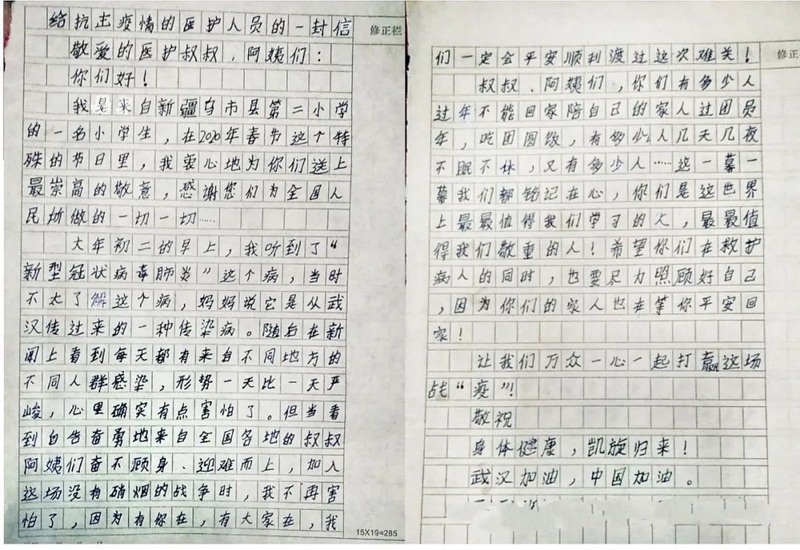 给抗击疫情的医护人员的一封信
修正栏
敬爱的医护叔叔、阿姨们：
你们好！
我是来自新疆乌市县第二小学
的一名小学生，在2020年春节这个特
殊的节日里，我衷心地为你们送上
最崇高的敬意，感谢您们为全国人
民所做的一切一切……
大年初二的早上，我听到了“
新型冠状病毒肺炎”这个病，当时
不太了解这个病，妈妈说它是从武
汉传过来的一种传染病。随后在新
闻上看到每天都有来自不同地方的
不同人群感染，形势一天比一天严
峻，心里确实有点害怕了。但当看
到自告奋勇地来自全国各地的叔叔
阿姨们奋不顾身、迎难而上，加入
这场没有硝烟的战争时，我不再害
怕了，因为有你在，有大家在，我
15X19=285
们一定会平安顺利渡过这次难关！
修正
叔叔、阿姨们，你们有多少人
过年不能回家陪自己的家人过团员
年，吃团圆饭，有多少人几天几夜
不眠不休，又有多少人……这一幕一
幕我们都铭记在心，你们是这世界
上最最值得我们学习的人，最最值
得我们敬重的人！希望你们在救护
病人的同时，也要尽力照顾好自己
，因为你们的家人也在等你平安回
家！
让我们万众一心一起打赢这场
战“疫”！
敬祝
身体健康，凯旋归来！
武汉加油，中国加油。